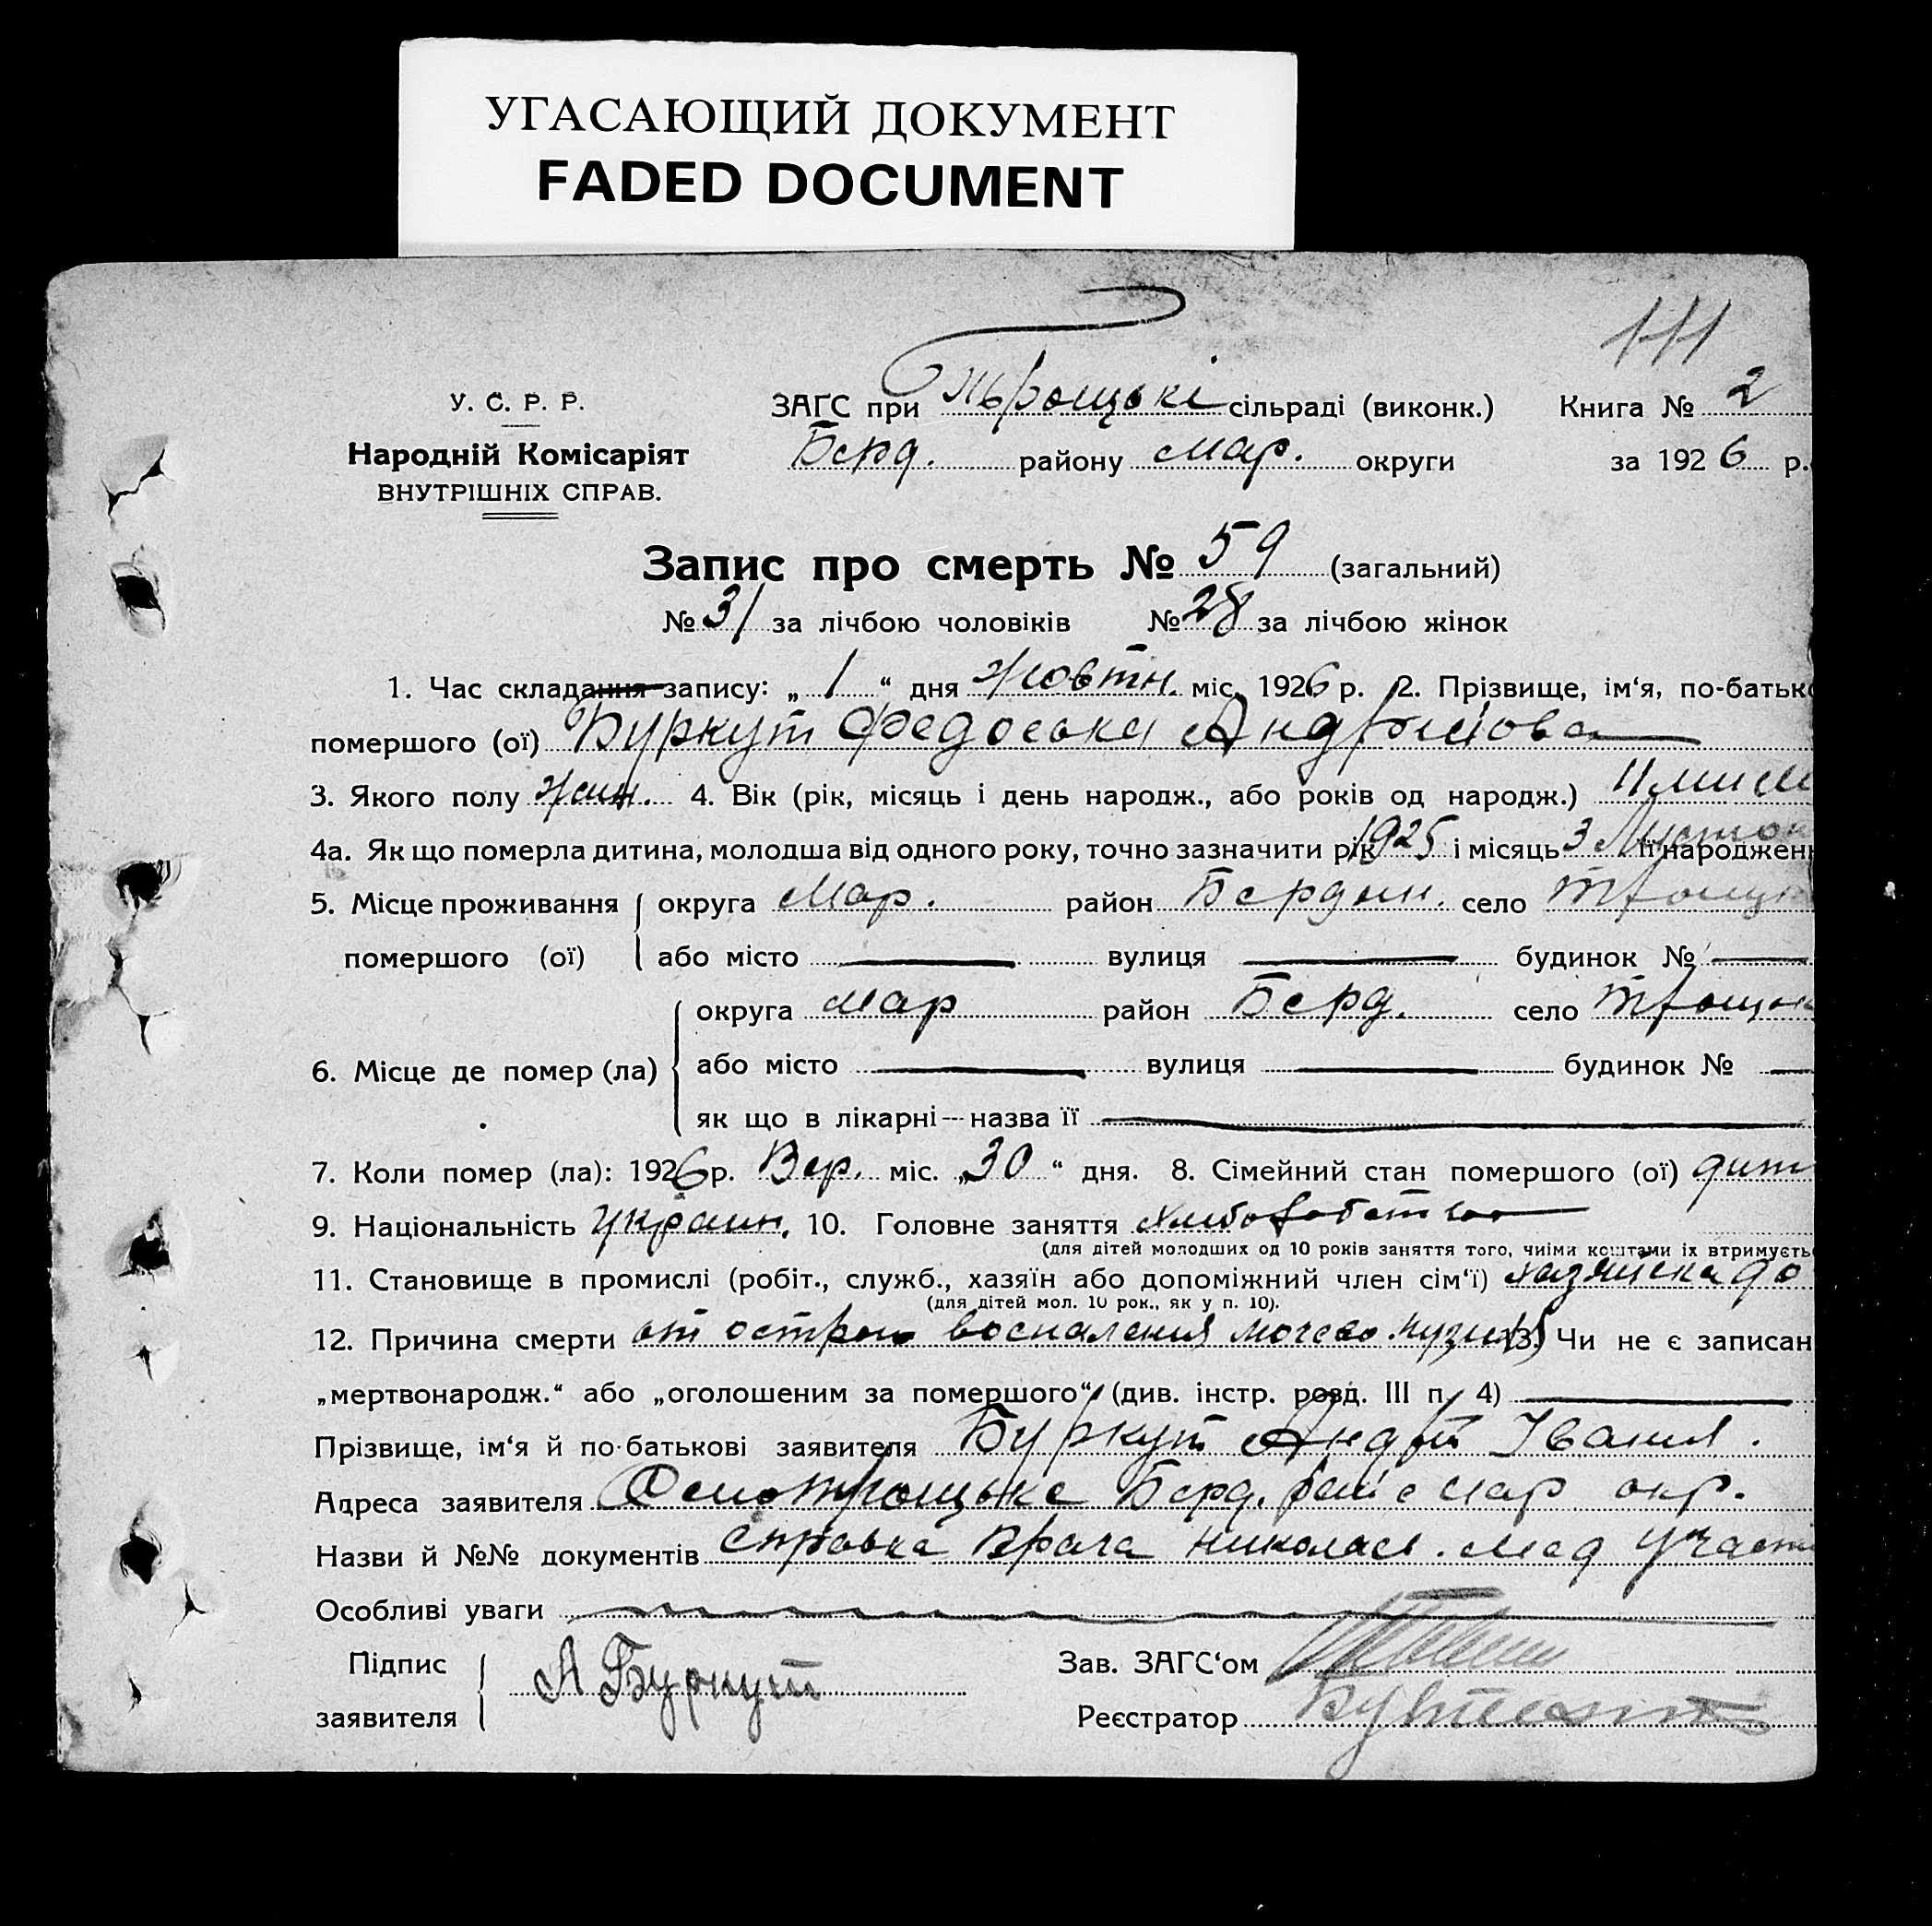 УГАСАЮЩИЙ ДОКУМЕНТ
FADED DOCUMENT
У. С. Р. Р.
Народній Комісаріят
ВНУТРІШНІХ СПРАВ.
ЗАГС при Трощькі сільраді (виконк.) Книга № 2
Берд. району Мар. округи за 1926 р.
Запис про смерть № 59 (загальний)
№ 31 за лічбою чоловіків № 28 за лічбою жінок
1. Час складання запису: „ 1 “ дня Жовтн. міс. 1926 р. 2. Прізвище, ім‘я, по-батьк
помершого (ої) Буркут Федоська
3. Якого полу жин. 4. Вік (рік, місяць і день народж., або років од народж.) 11
4а. Як що померла дитина, молодша від одного року, точно зазначити рік 1925 і місяць 3 її народжен
5. Місце проживання помершого (ої) округа Мар. район село
або місто вулиця будинок №
6. Місце де помер (ла) округа Мар район Берд. село
або місто вулиця будинок №
як що в лікарні — назва її
7. Коли помер (ла): 1926 р. Вер. міс. „ 30 “ дня. 8. Сімейний стан помершого (ої) дит
9. Національність Украин. 10. Головне заняття
(для дітей молодших од 10 років заняття того, чиїми коштами їх втримуєть
11. Становище в промислі (робіт., служб., хазяїн або допоміжний член сім‘ї)
(для дітей мол. 10 рок., як у п. 10).
12. Причина смерти от острого воспаления мочево 13) Чи не є записан
„мертвонародж.“ або „оголошеним за помершого“ (див. інстр. розд. III п. 4)
Прізвище, ім‘я й по-батькові заявителя Буркут Андрій
Адреса заявителя Берд. Мар окр.
Назви й №№ документів Справка Врача Николаев. Мед Участ
Особливі уваги
Підпис заявителя А Буркут
Зав. ЗАГС‘ом
Реєстратор